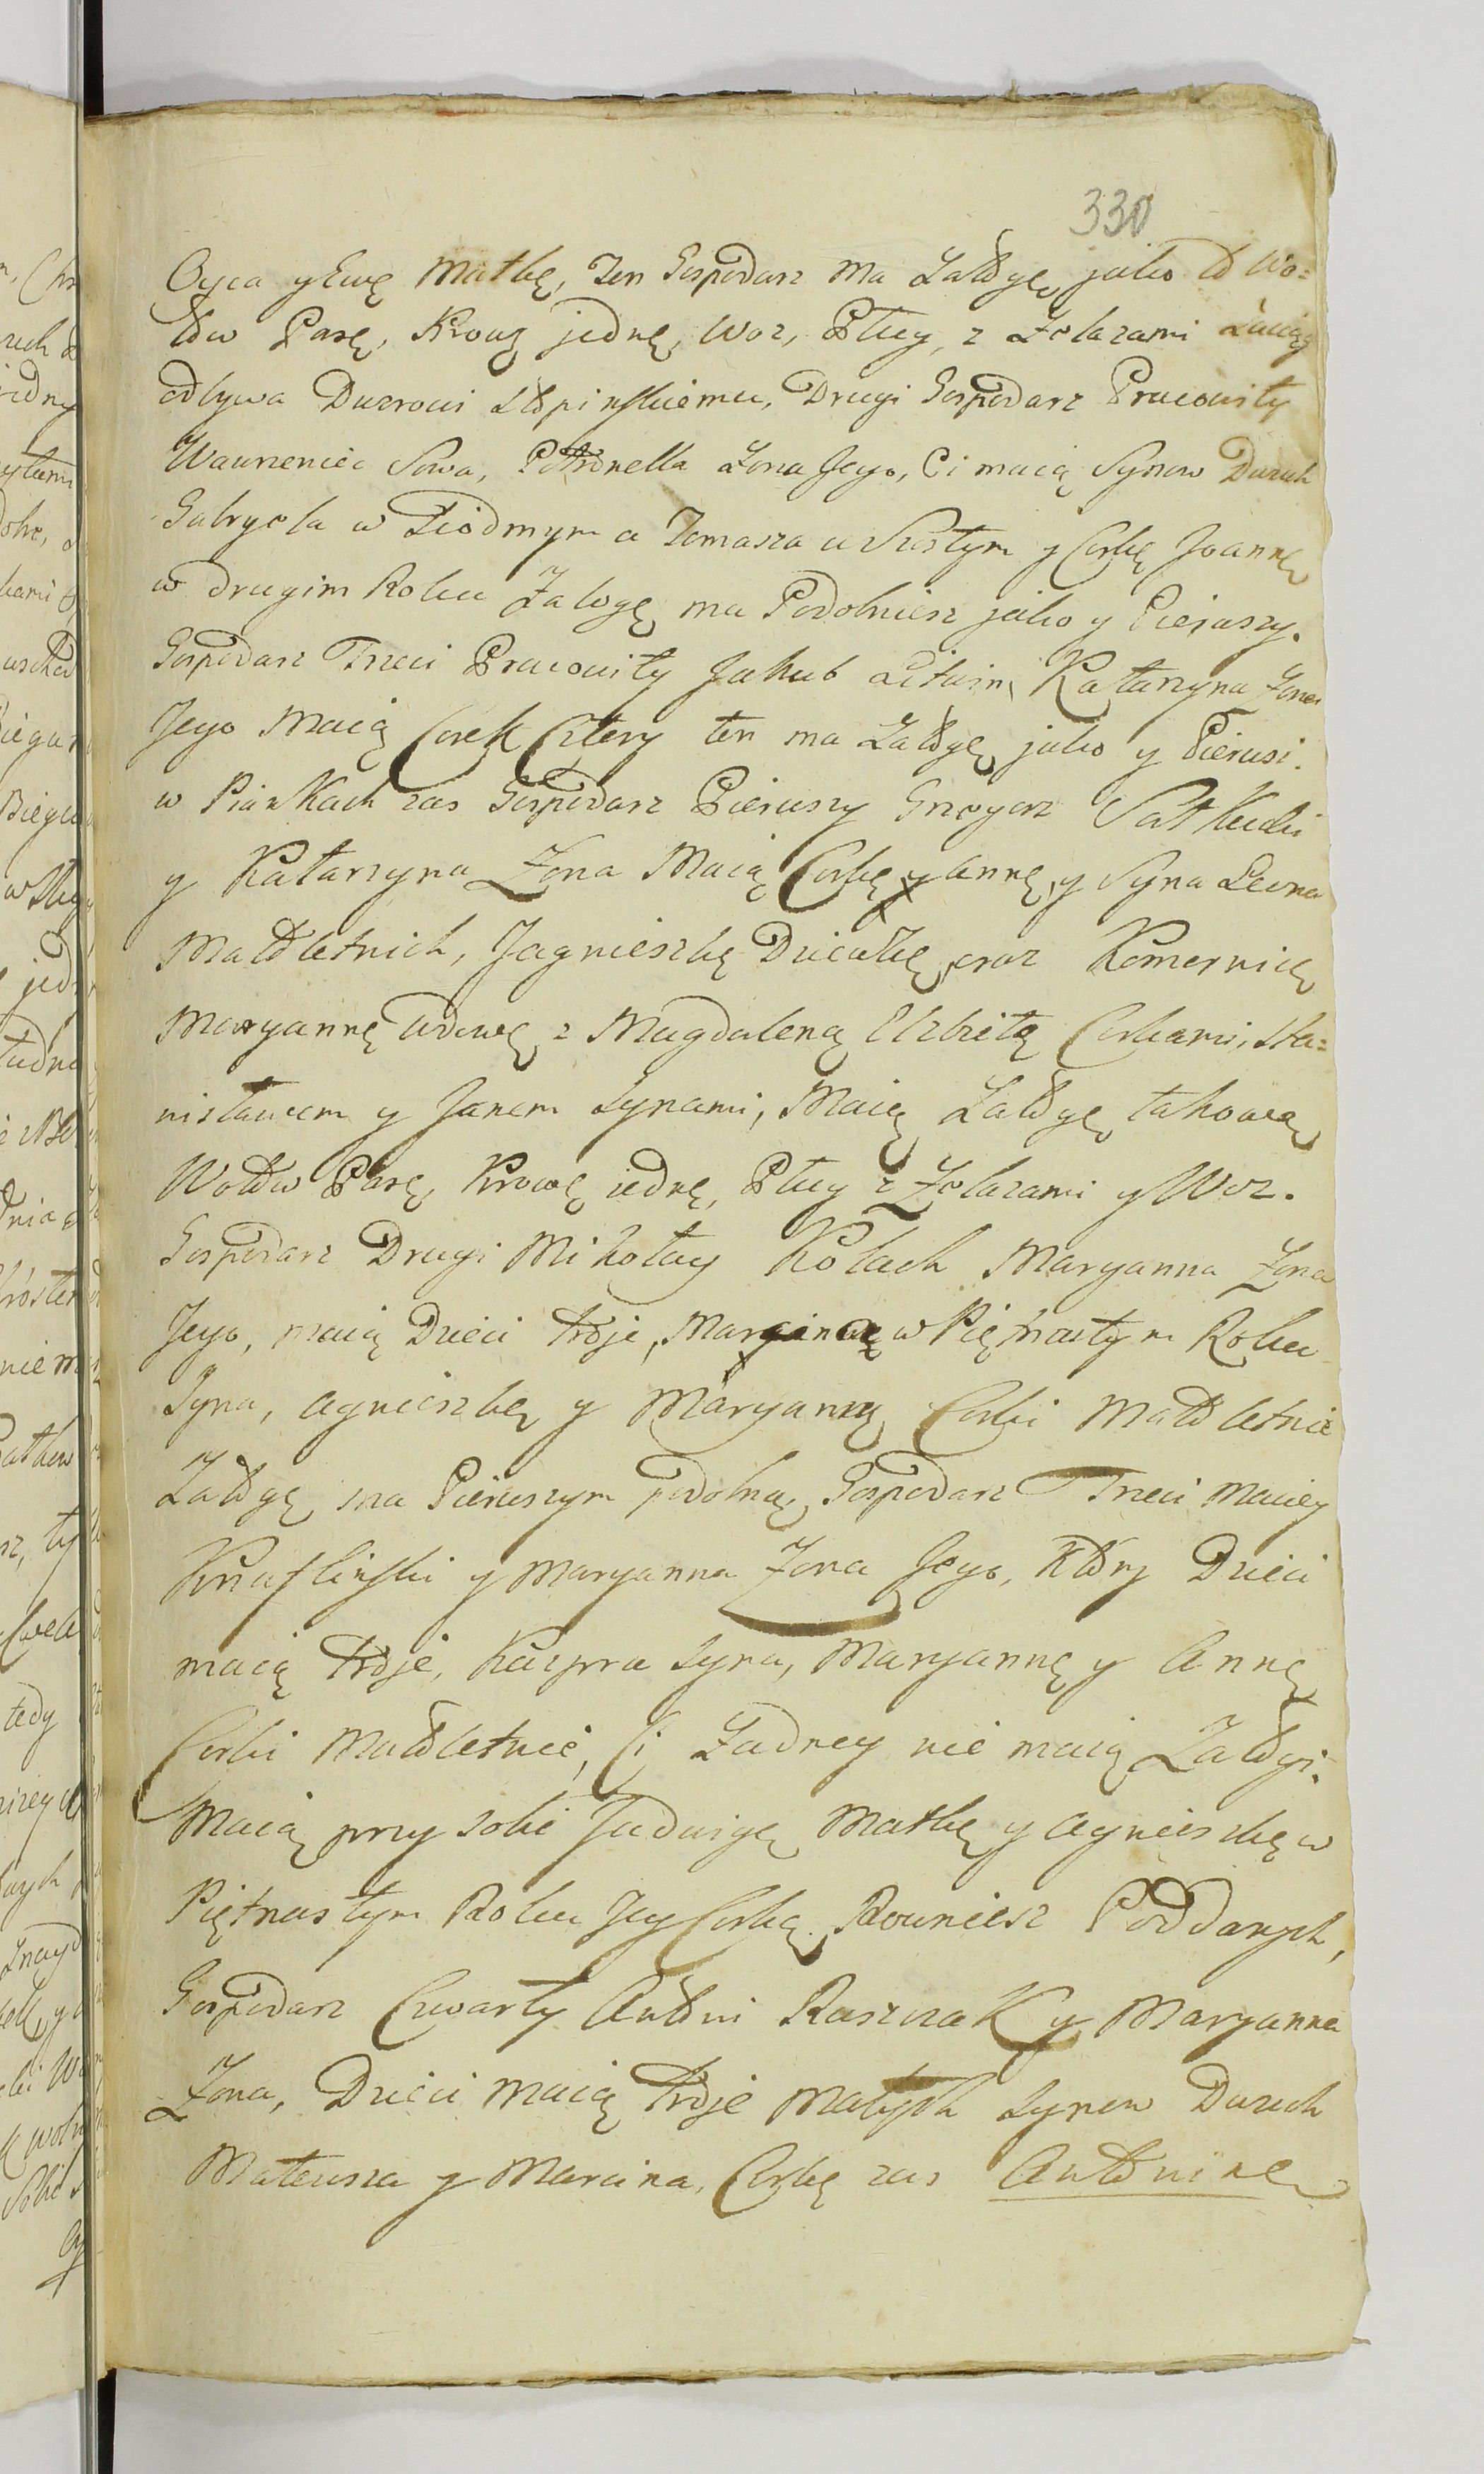 330
Oyca y Ewę Matkę, Ten Gospodarz Ma Załogę, jako to Wo=
łow Parę, Krowę jednę, Woz, Pług, z Zelazami Zaciąg
odbywa Dworowi Słopinskiemu, Drugi Gospodarz Pracowity
Wawrzeniec Sowa, Petronella Zona Jego, Ci maią Synow Dwuch
Gabryela w Siodmym a Tomasza w Szostym y Corkę Joannę
w drugim Roku Załogę ma Podobniesz jako y Pierwszy.
Gospodarz Trzeci Pracowity Jakub Litwin, Katarzyna Zona
Jego Maią Corek Cztery ten ma Załogę, jako y Pierwsi.
w Piaskach zas Gospodarz Pierwszy Grzegorz
y Katarzyna Zona Maią Corkę Annę, y Syna Leona
Małoletnich, Jagnieszkę Dziewkę, oraz Komornicę
Maryannę Wdowę z Magdaleną Elzbietą Corkami, Sta=
nisławem y Janem Synami, Maią Załogę, takową
Wołow Parę, Krowę iednę, Pług z Zelazami y Woz.
Gospodarz Drugi Mikołay Kołach Maryanna Zona
Jego, maią Dzieci troje, w Piętnastym Roku
Syna, Agnieszkę y Maryannę Corki Małoletnie
Załogę, ma Pierwszym podobną, Gospodarz Trzeci Maciey
y Maryanna Zona Jego, Ktory Dzieci
maią troje, Kacpra Syna, Maryannę y Annę
Corki Małoletnie, Ci Zadney nie maią Załogi.
Maią przy sobie Jadwigę Matkę y Agnieszkę w
Piętnastym Roku Jey Corką, Rowniesz Poddanych,
Gospodarz Czwarty Antoni Raszczak y Maryanna
Zona, Dzieci maią troje Małych Synow Dwuch
Mateusza y Marcina, Corkę zas Antoninę